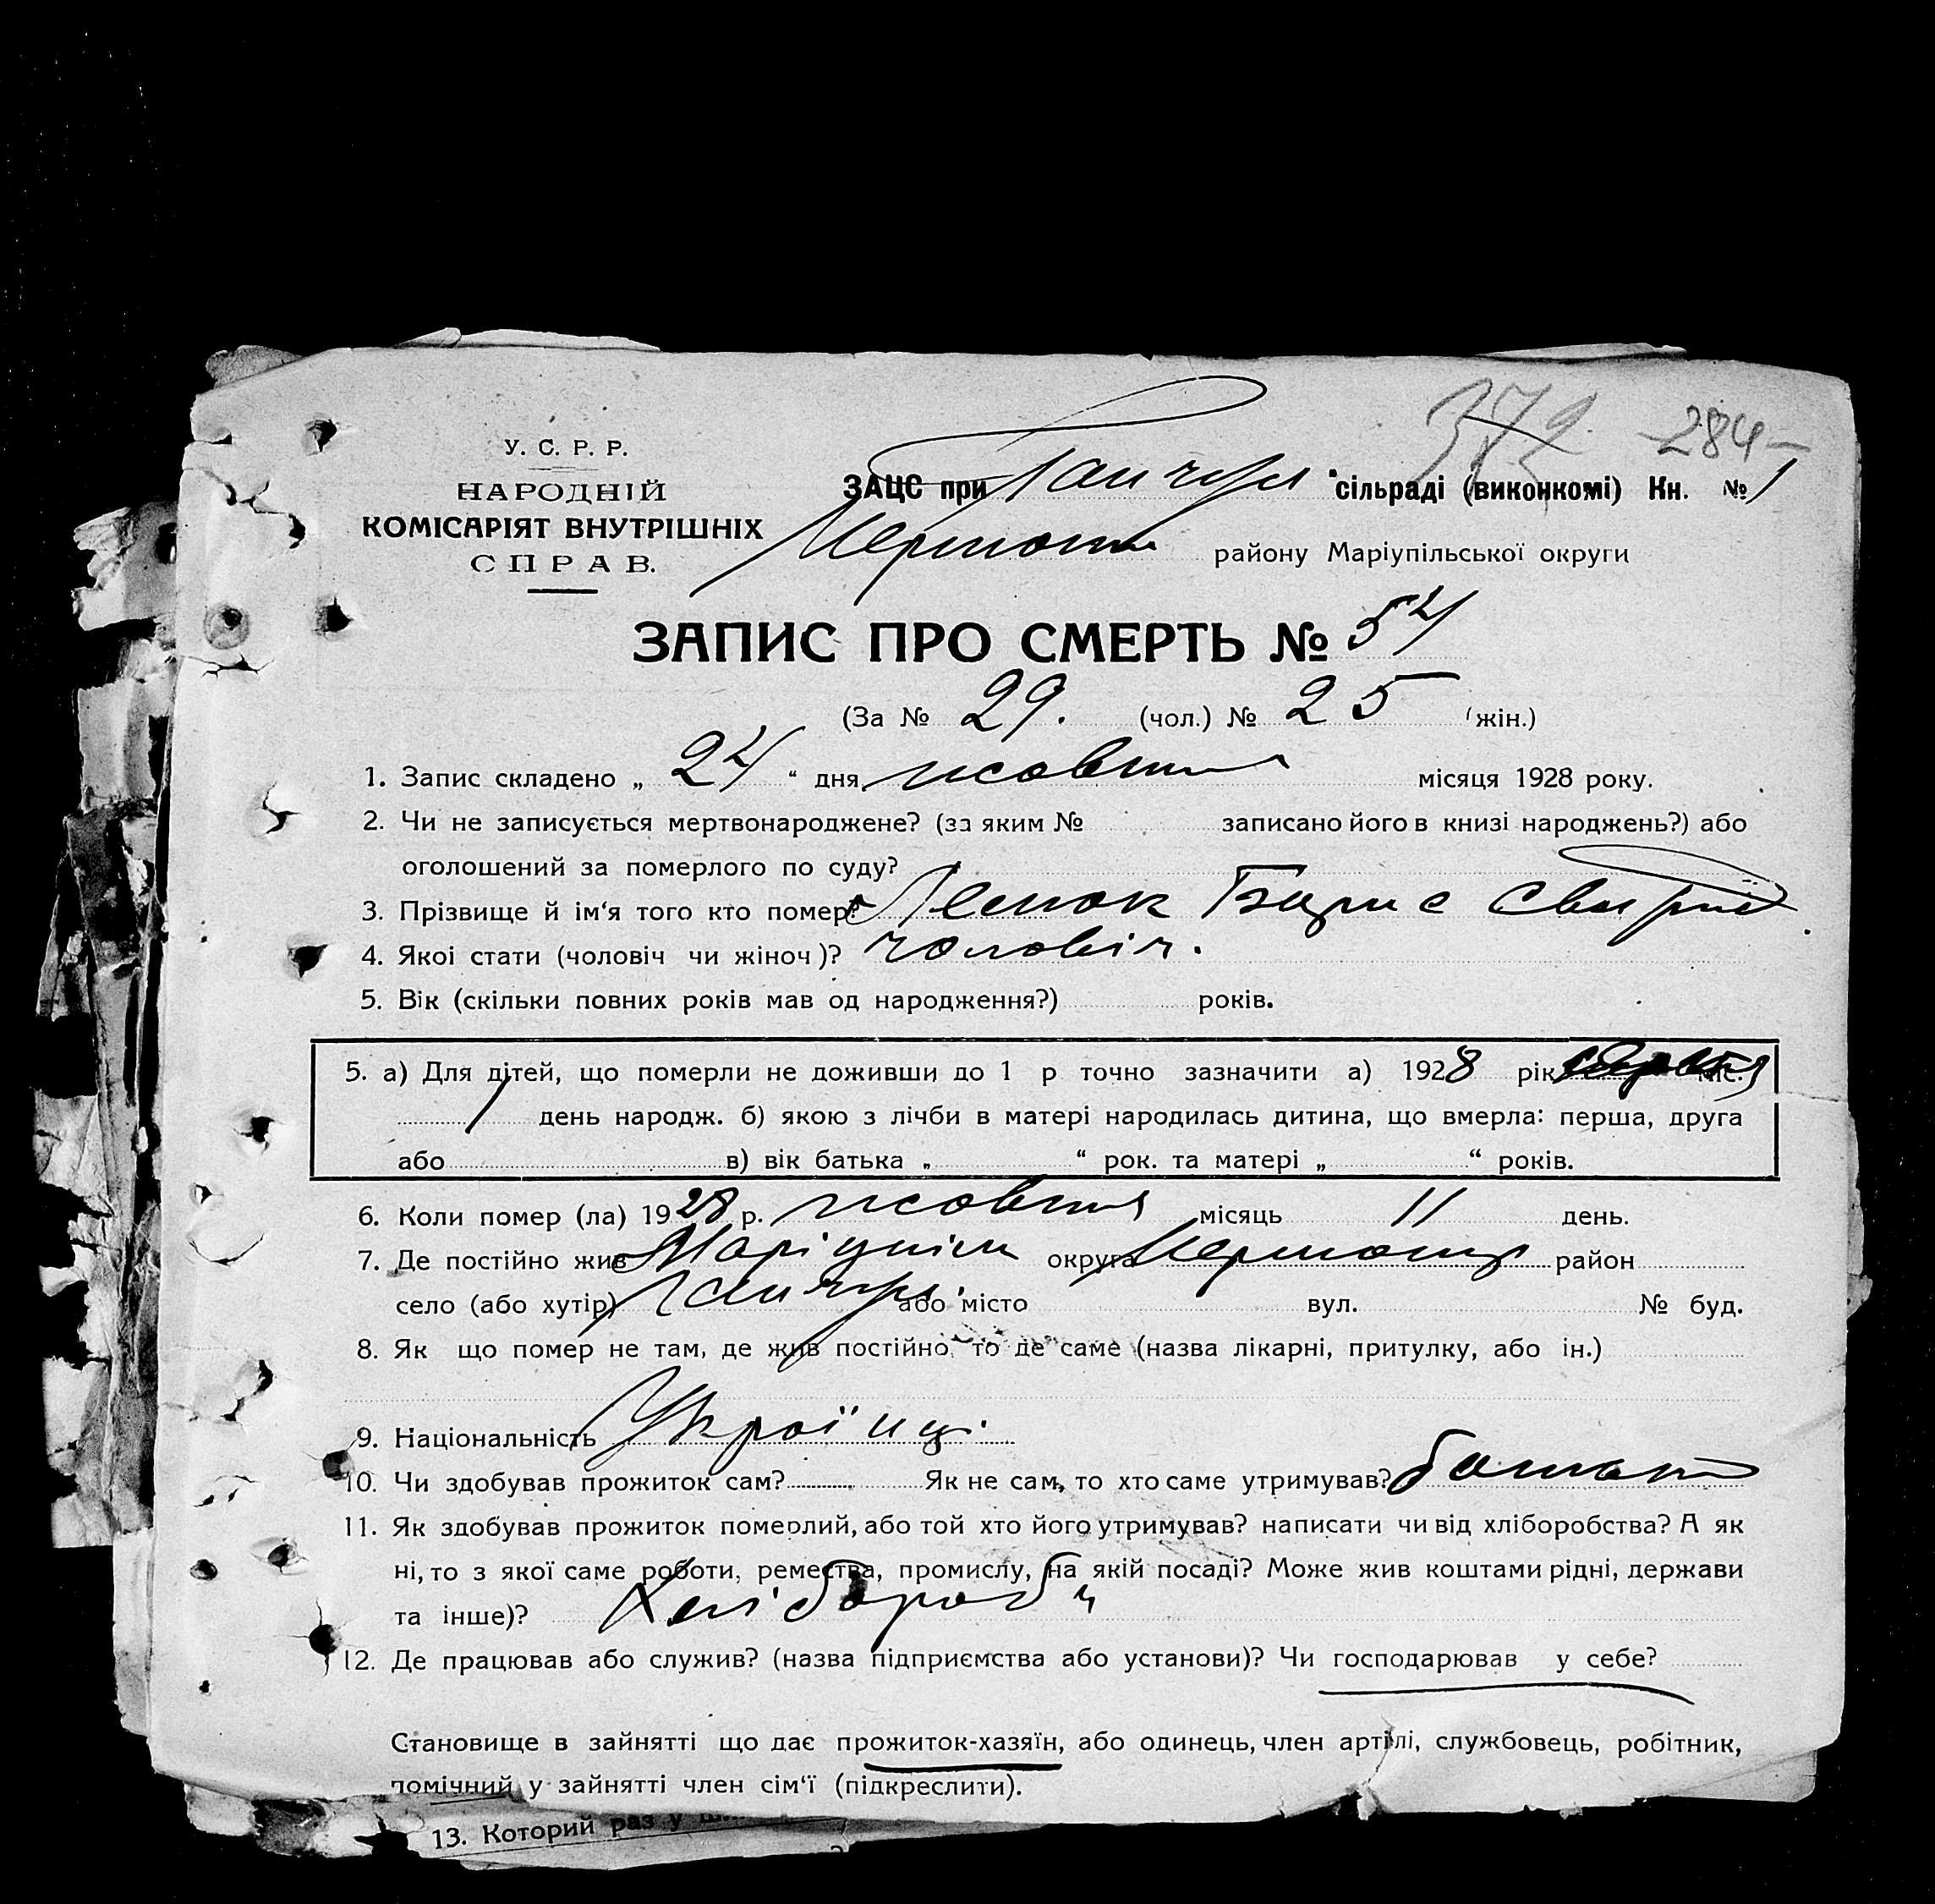 372 -284-
У. С. Р. Р.
НАРОДНІЙ
КОМІСАРІЯТ ВНУТРІШНІХ
СПРАВ.
ЗАЦС при сільраді (виконкомі) Кн. № 1
району Маріупільської округи
ЗАПИС ПРО СМЕРТЬ № 54
(За № 29. (чол.) № 25 (жін.)
1. Запис складено „ 24 “ дня жовтня місяця 1928 року.
2. Чи не записується мертвонароджене? (за яким № записано його в книзі народжень?) або
оголошений за померлого по суду?
3. Прізвище й ім‘я того кто помер?
4. Якоі стати (чоловіч чи жіноч)? чоловіч.
5. Вік (скільки повних років мав од народження?) років.
5. а) Для дітей, що померли не доживши до 1 р точно зазначити а) 1928 рік міс.
1 день народж. б) якою з лічби в матері народилась дитина, що вмерла: перша, друга
або в) вік батька „ “ рок. та матері „ “ років.
6. Коли помер (ла) 1928 р. жовтня місяць 11 день.
7. Де постійно жив Маріупіль округа район
село (або хутір) або місто вул. № буд.
8. Як що помер не там, де жив постійно то де саме (назва лікарні, притулку, або ін.)
9. Національність Україці.
10. Чи здобував прожиток сам? Як не сам, то хто саме утримував? батько
11. Як здобував прожиток померлий, або той хто його утримував? написати чи від хліборобства? А як
ні, то з якої саме роботи, ремества, промислу, на якій посаді? Може жив коштами рідні, держави
та інше)? Хлібороб
12. Де працював або служив? (назва підприємства або установи)? Чи господарював у себе?
Становище в зайнятті що дає прожиток-хазяїн, або одинець, член артілі, службовець, робітник,
помічний у зайнятті член сім‘ї (підкреслити).
13. Которий раз у